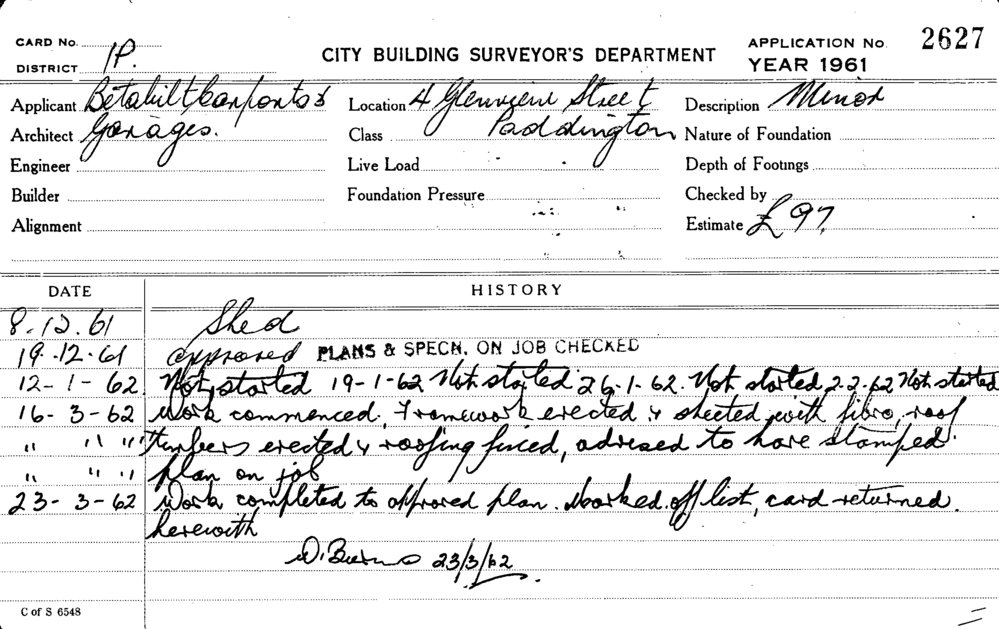 CARD No.
CITY BUILDING SURVEYOR'S DEPARTMENT
APPLICATION No. 2627
DISTRICT 1P.
YEAR 1961
Applicant Betabilt Carports &
Location 4 Glenview Street
Description Minor
Architect Garages.
Class Paddington
Nature of Foundation
Engineer
Live Load
Depth of Footings
Builder
Foundation Pressure
Checked by
Alignment
Estimate £97.
DATE
HISTORY
8.12.61 Shed
19.12.61 approved PLANS & SPECN. ON JOB CHECKED
12-1-62. Not started 19-1-62 Not started 26.1.62. Not started 2.2.62 Not started
16-3-62 Work commenced. Framework erected & sheeted with fibro, roof
" " " timbers erected & roofing fixed, advised to have stamped
" " " plan on job
23-3-62 Work completed to approved plan. Marked off list, card returned
herewith
D. Burns 23/3/62.
C of S 6548